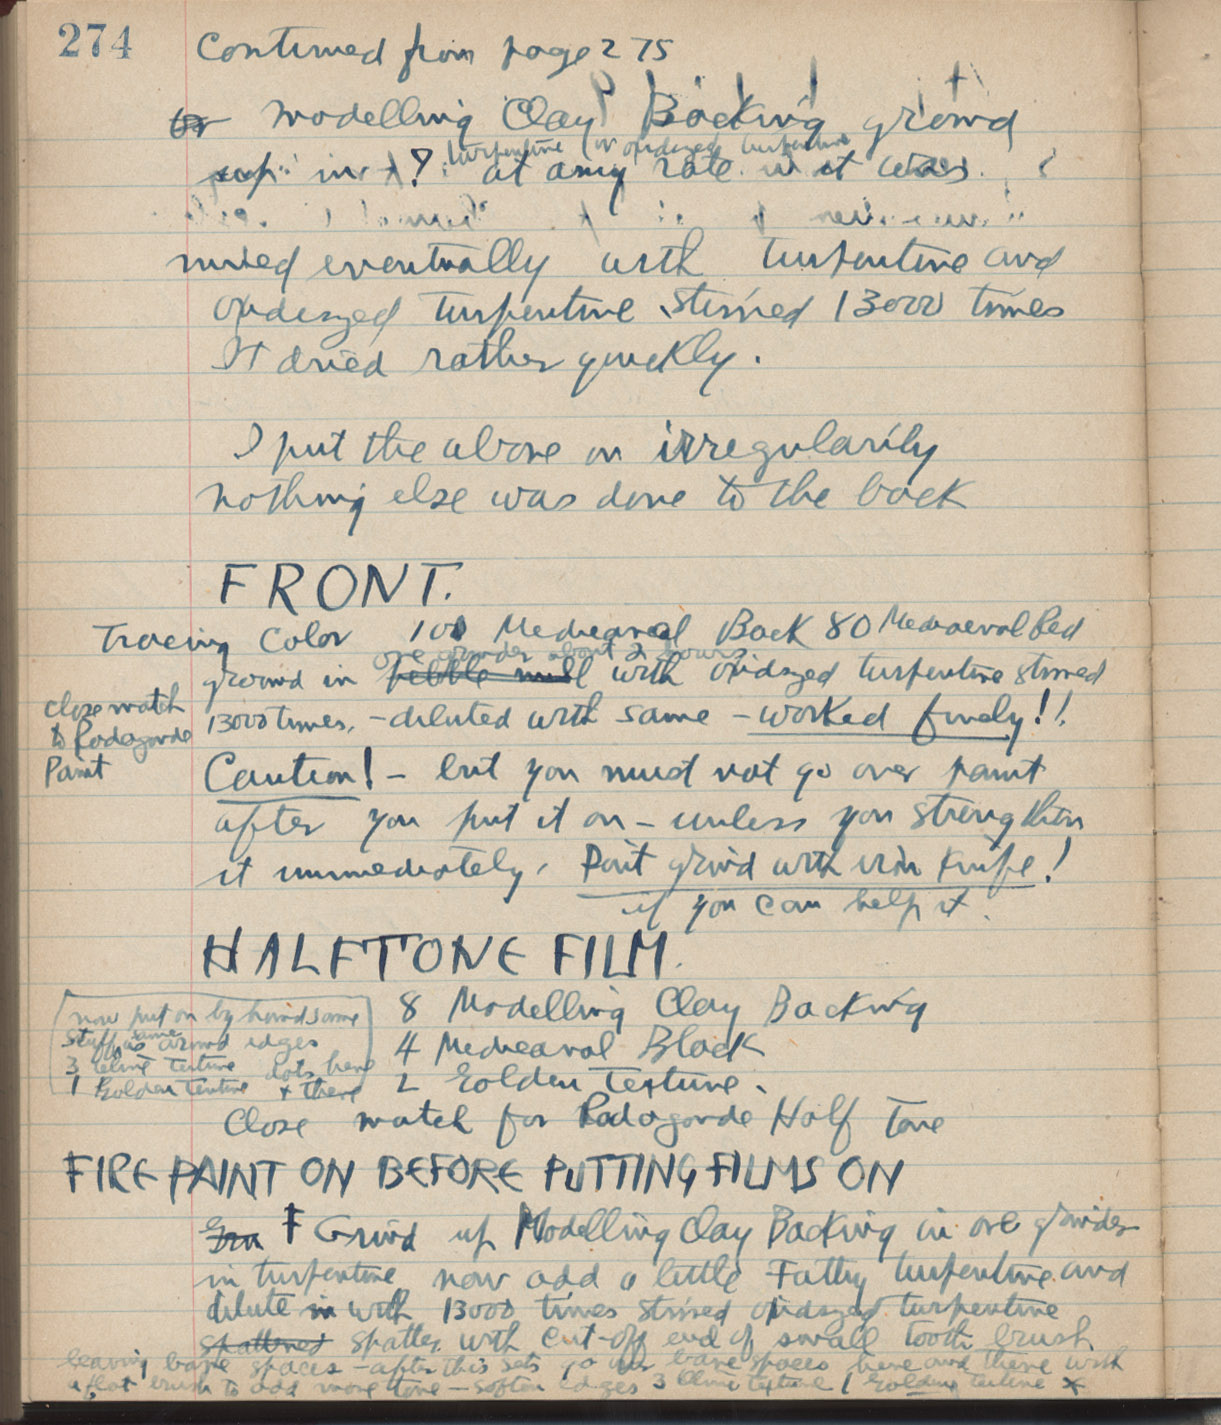 274 Continued from page 275
or modelling Clay Backing ground
up in ? turpentine (or oxidized turpentine at any rate it was
mixed eventually with turpentine and
oxidized turpentine stirred 13000 times
It dried rather quickly.
I put the above on irregularily
nothing else was done to the back
FRONT.
Tracing Color 100 Mediaeval Back 80 Mediaeval Red
one grinder about 2 hours
ground in pebble mill with oxidized turpentine stirred
13000 times. - diluted with same - worked finely!!
close match
to Radagorde
Paint
Caution! - but you must not go over paint
after you put it on - unless you strengthen
it immediately. Don't grind with iron knife!
if you can help it.
HALFTONE FILM.
8 Modelling Clay Backing
4 Mediaeval Black
2 Golden Texture.
now put on by hand same
stuff as same around edges
3 texture dots here
1 Golden texture + there
Close match for Radagorde Half Tone
FIRE PAINT ON BEFORE PUTTING FILMS ON
Grind up Modelling Clay Backing in ore grinder
in turpentine now add a little Fatty turpentine and
dilute in with 13000 times stirred oxidized turpentine
spattered spatter with cut-off end of small tooth brush
leaving bare spaces - after this sets go over bare spaces here and there with
a flat brush to add more tone - soften edges 3 texture 1 Golden texture x